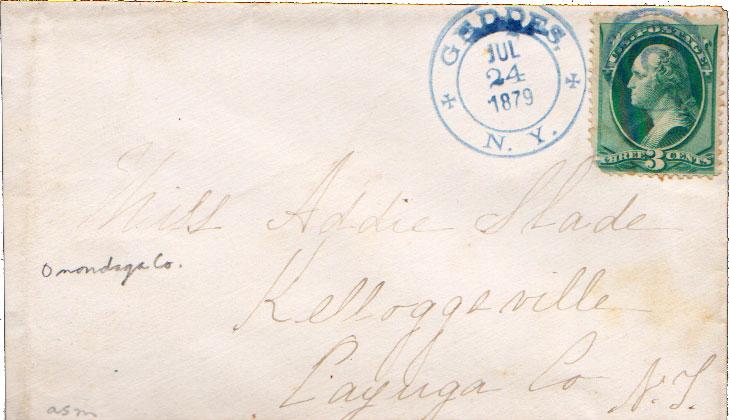 GEDDES,
JUL
24
1879
N. Y.
U.S. POSTAGE
THREE 3 CENTS
Miss Addie Slade
Onondaga Co.
Kelloggsville
Cayuga Co N.Y.
asm